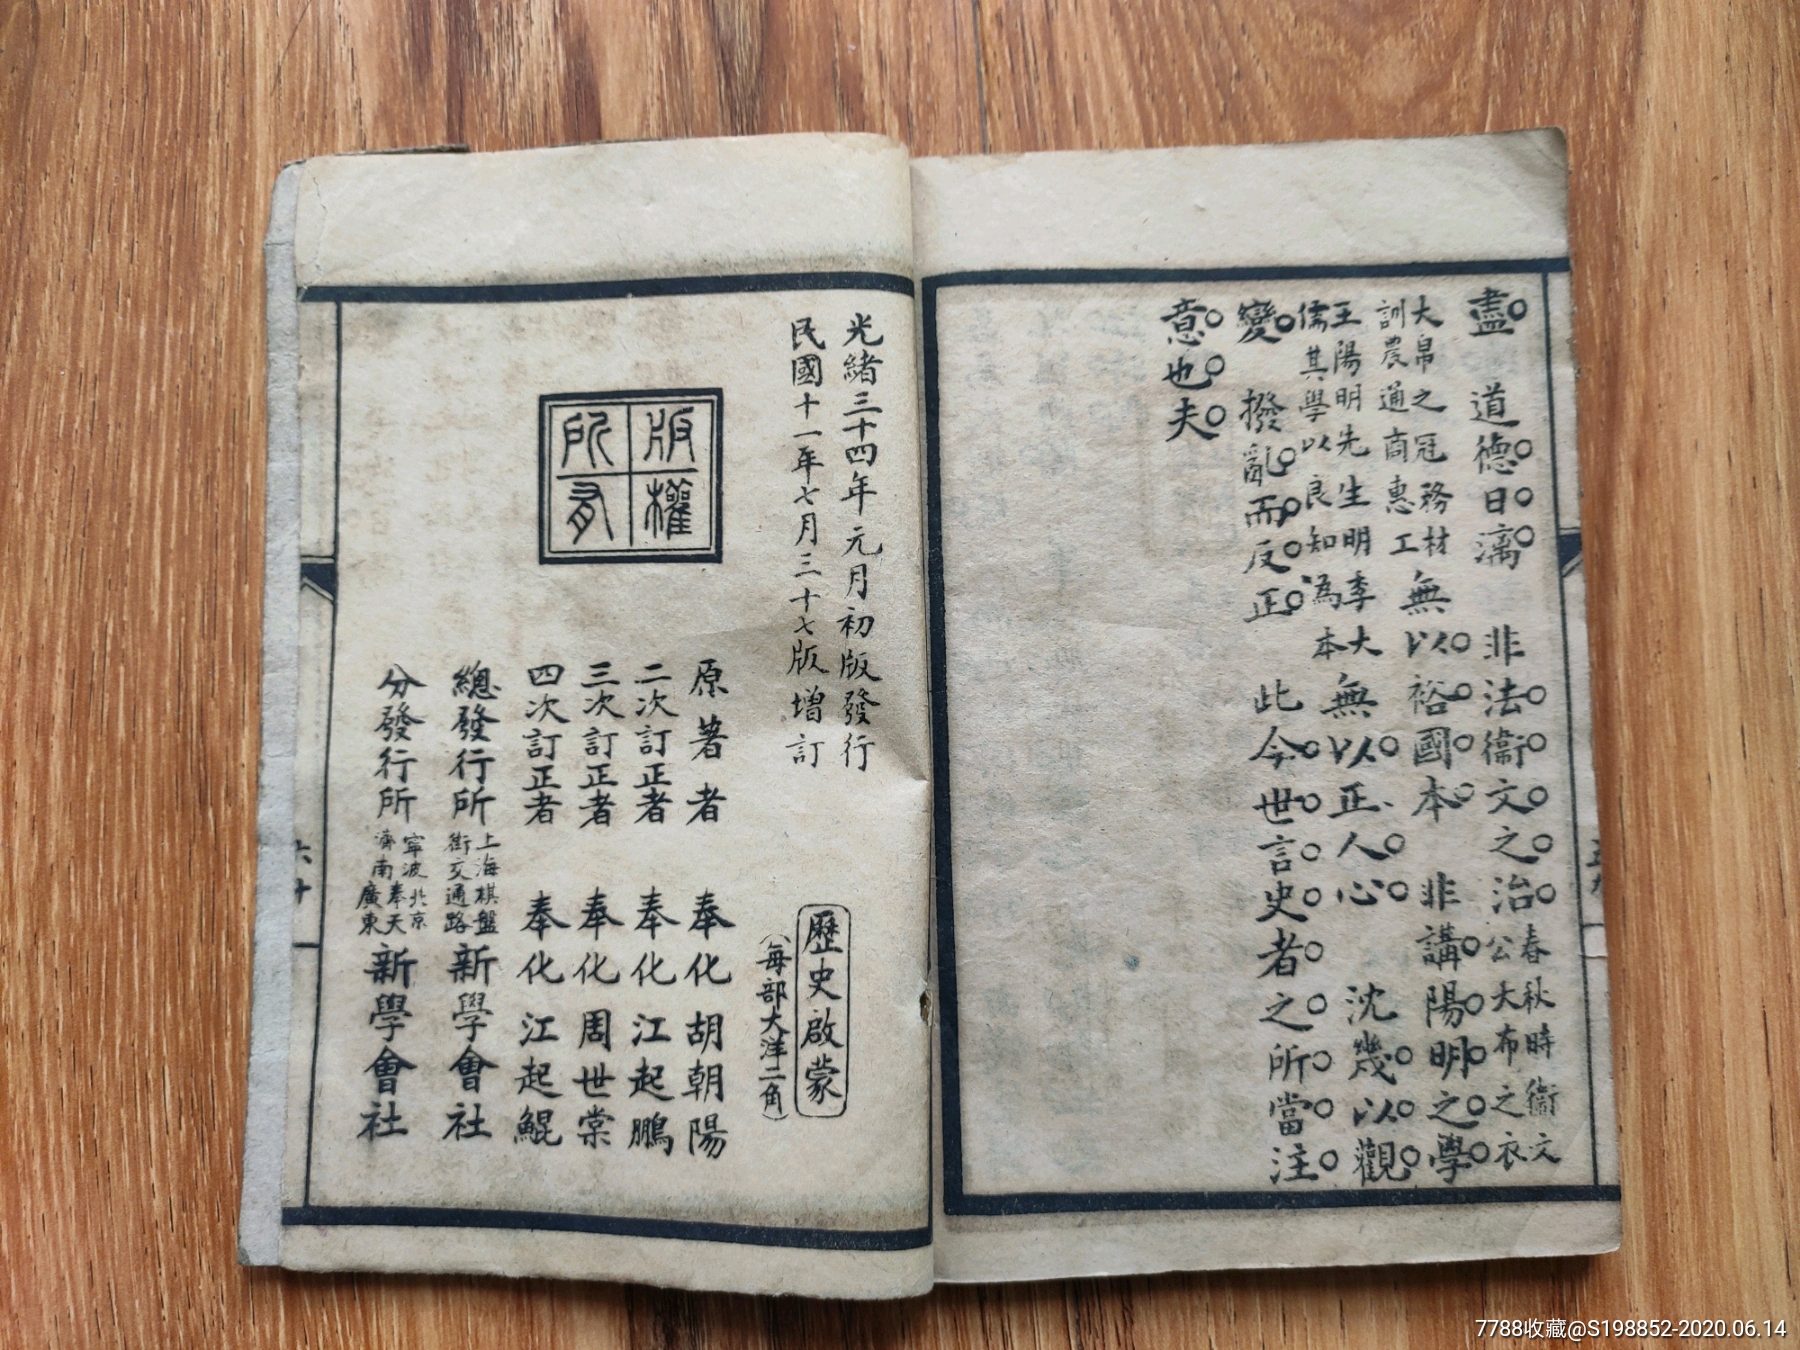 盡 道德日漓 非法衞文之治春秋時衞文公大布之衣
大帛之冠務材訓農通商惠工無以裕國本 非講陽明之學
王陽明先生明季大儒其學以良知為本無以正人心 沈幾以觀
變 撥亂而反正 此今世言史者之所當注
意也夫
光緒三十四年元月初版發行
民國十一年七月三十七版增訂
歷史啟蒙
(每部大洋二角)
版權所有
原著者 奉化胡朝陽
二次訂正者 奉化江起鵬
三次訂正者 奉化周世棠
四次訂正者 奉化江起鯤
總發行所 上海棋盤街交通路 新學會社
分發行所 寧波北京奉天濟南廣東 新學會社
六十
7788收藏@S198852-2020.06.14